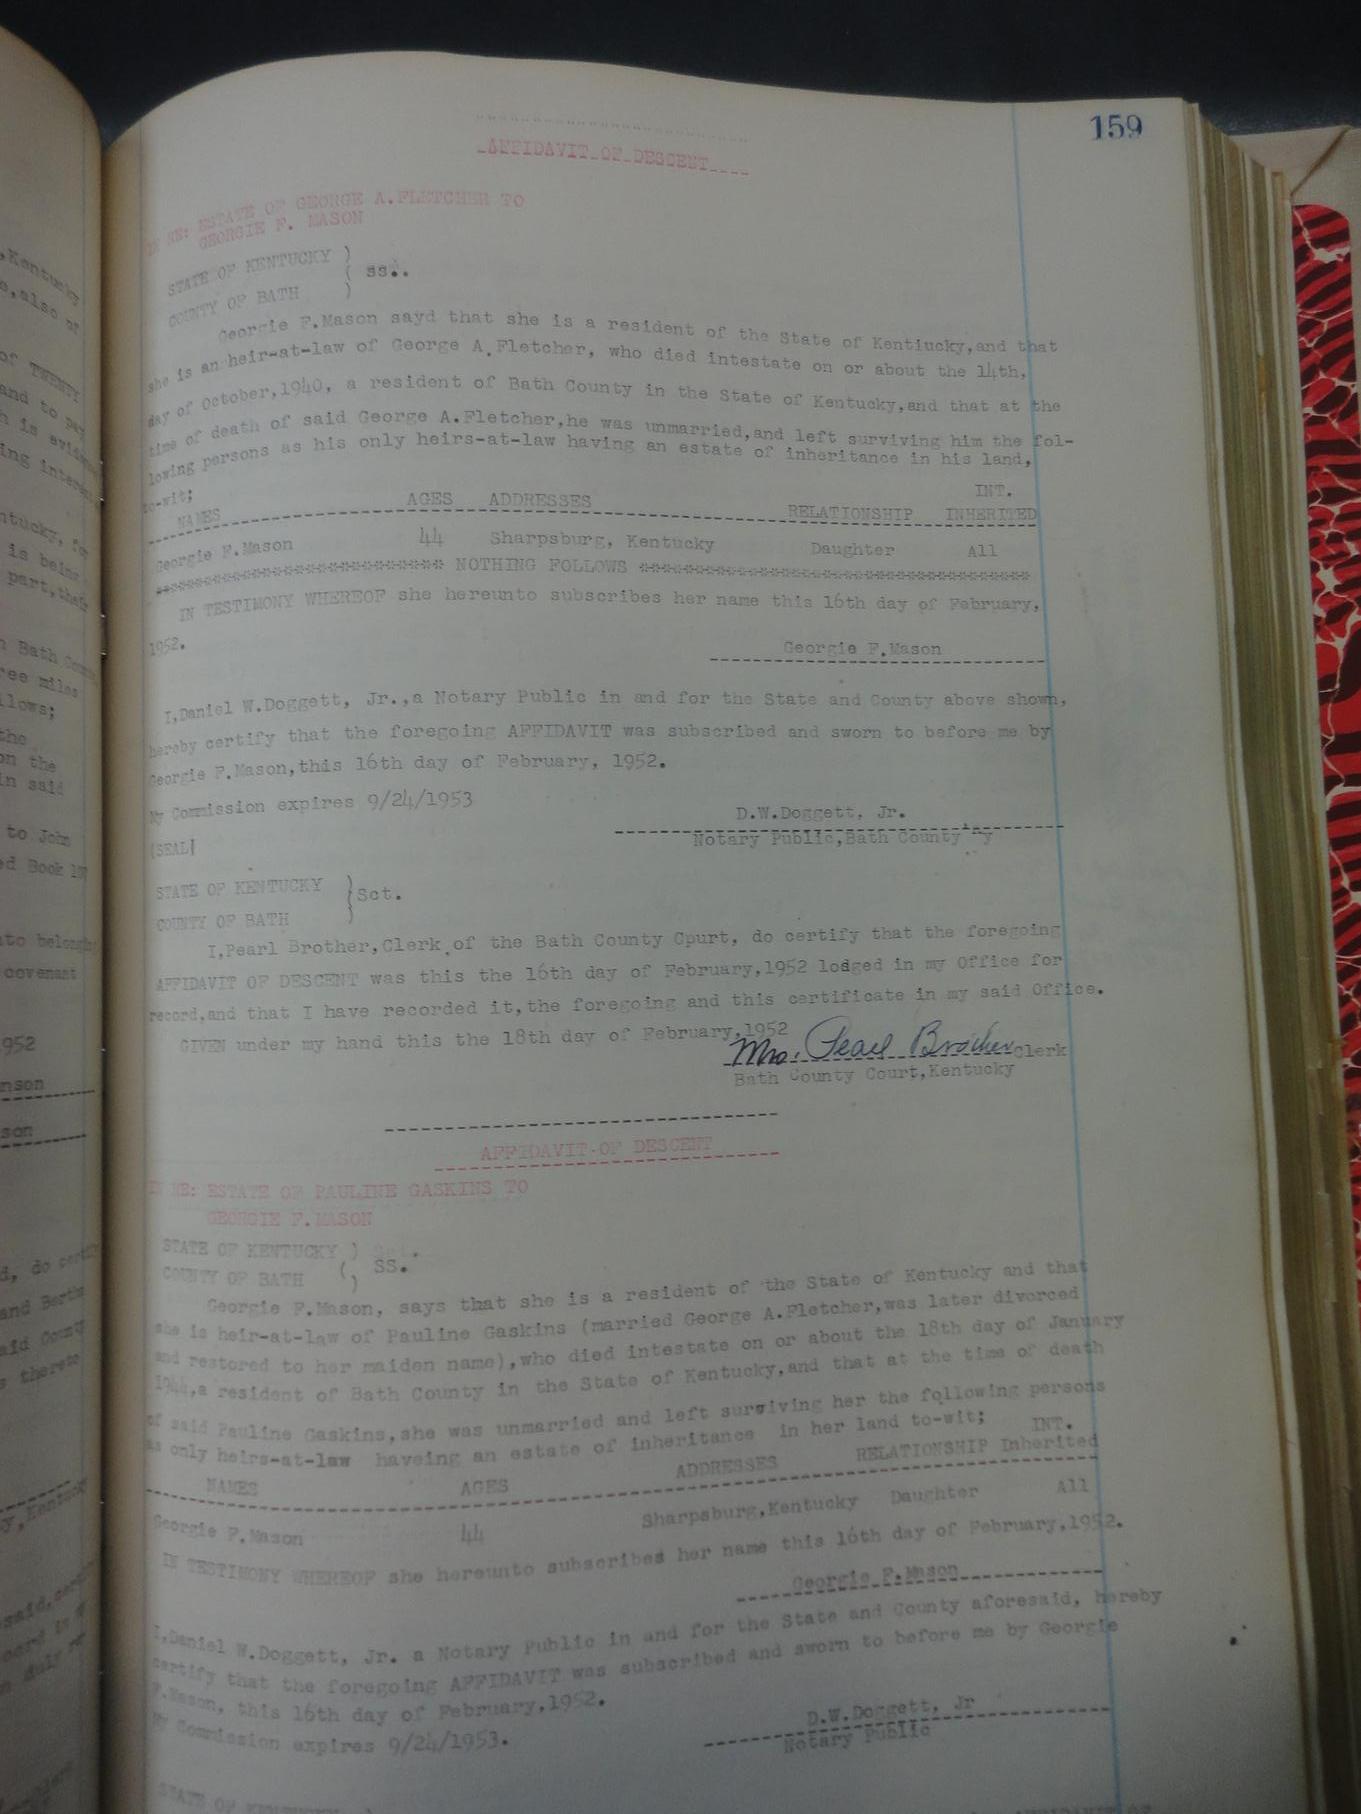 159
AFFIDAVIT OF DESCENT
IN RE: ESTATE OF GEORGE A.FLETCHER TO
GEORGIE F. MASON
STATE OF KENTUCKY )
( ss..
COUNTY OF BATH )
Georgie F.Mason sayd that she is a resident of the State of Kentiucky,and that
she is an heir-at-law of George A.Fletcher, who died intestate on or about the 14th,
day of October,1940, a resident of Bath County in the State of Kentucky,and that at the
time of death of said George A.Fletcher,he was unmarried,and left surviving him the fol-
lowing persons as his only heirs-at-law having an estate of inheritance in his land,
to-wit;
NAMES AGES ADDRESSES RELATIONSHIP INT. INHERITED
Georgie F.Mason 44 Sharpsburg, Kentucky Daughter All
NOTHING FOLLOWS
IN TESTIMONY WHEREOF she hereunto subscribes her name this 16th day of February,
1952.
Georgie F.Mason
I,Daniel W.Doggett, Jr.,a Notary Public in and for the State and County above shown,
hereby certify that the foregoing AFFIDAVIT was subscribed and sworn to before me by
Georgie F.Mason,this 16th day of February, 1952.
My Commission expires 9/24/1953
D.W.Doggett, Jr.
(SEAL)
Notary Public,Bath County Ky
STATE OF KENTUCKY }
Sct.
COUNTY OF BATH
I,Pearl Brother,Clerk of the Bath County Cpurt, do certify that the foregoing
AFFIDAVIT OF DESCENT was this the 16th day of February,1952 lodged in my Office for
record,and that I have recorded it,the foregoing and this certificate in my said Office.
GIVEN under my hand this the 18th day of February,1952
Mrs. Pearl Brother Clerk
Bath County Court,Kentucky
AFFIDAVIT OF DESCENT
IN RE: ESTATE OF PAULINE GASKINS TO
GEORGIE F.MASON
STATE OF KENTUCKY )
( SS.
COUNTY OF BATH )
Georgie F.Mason, says that she is a resident of the State of Kentucky and that
she is heir-at-law of Pauline Gaskins (married George A.Fletcher,was later divorced
and restored to her maiden name),who died intestate on or about the 18th day of January
1944,a resident of Bath County in the State of Kentucky,and that at the time of death
of said Pauline Gaskins,she was unmarried and left surviving her the following persons
as only heirs-at-law haveing an estate of inheritance in her land to-wit;
NAMES AGES ADDRESSES RELATIONSHIP INT. Inherited
Georgie F.Mason 44 Sharpsburg,Kentucky Daughter All
IN TESTIMONY WHEREOF she hereunto subscribes her name this 16th day of February,1952.
Georgie F.Mason
I,Daniel W.Doggett, Jr. a Notary Public in and for the State and County aforesaid, hereby
certify that the foregoing AFFIDAVIT was subscribed and sworn to before me by Georgie
F.Mason, this 16th day of February,1952.
My Commission expires 9/24/1953.
D.W.Doggett, Jr
Notary Public
STATE OF KENTUCKY